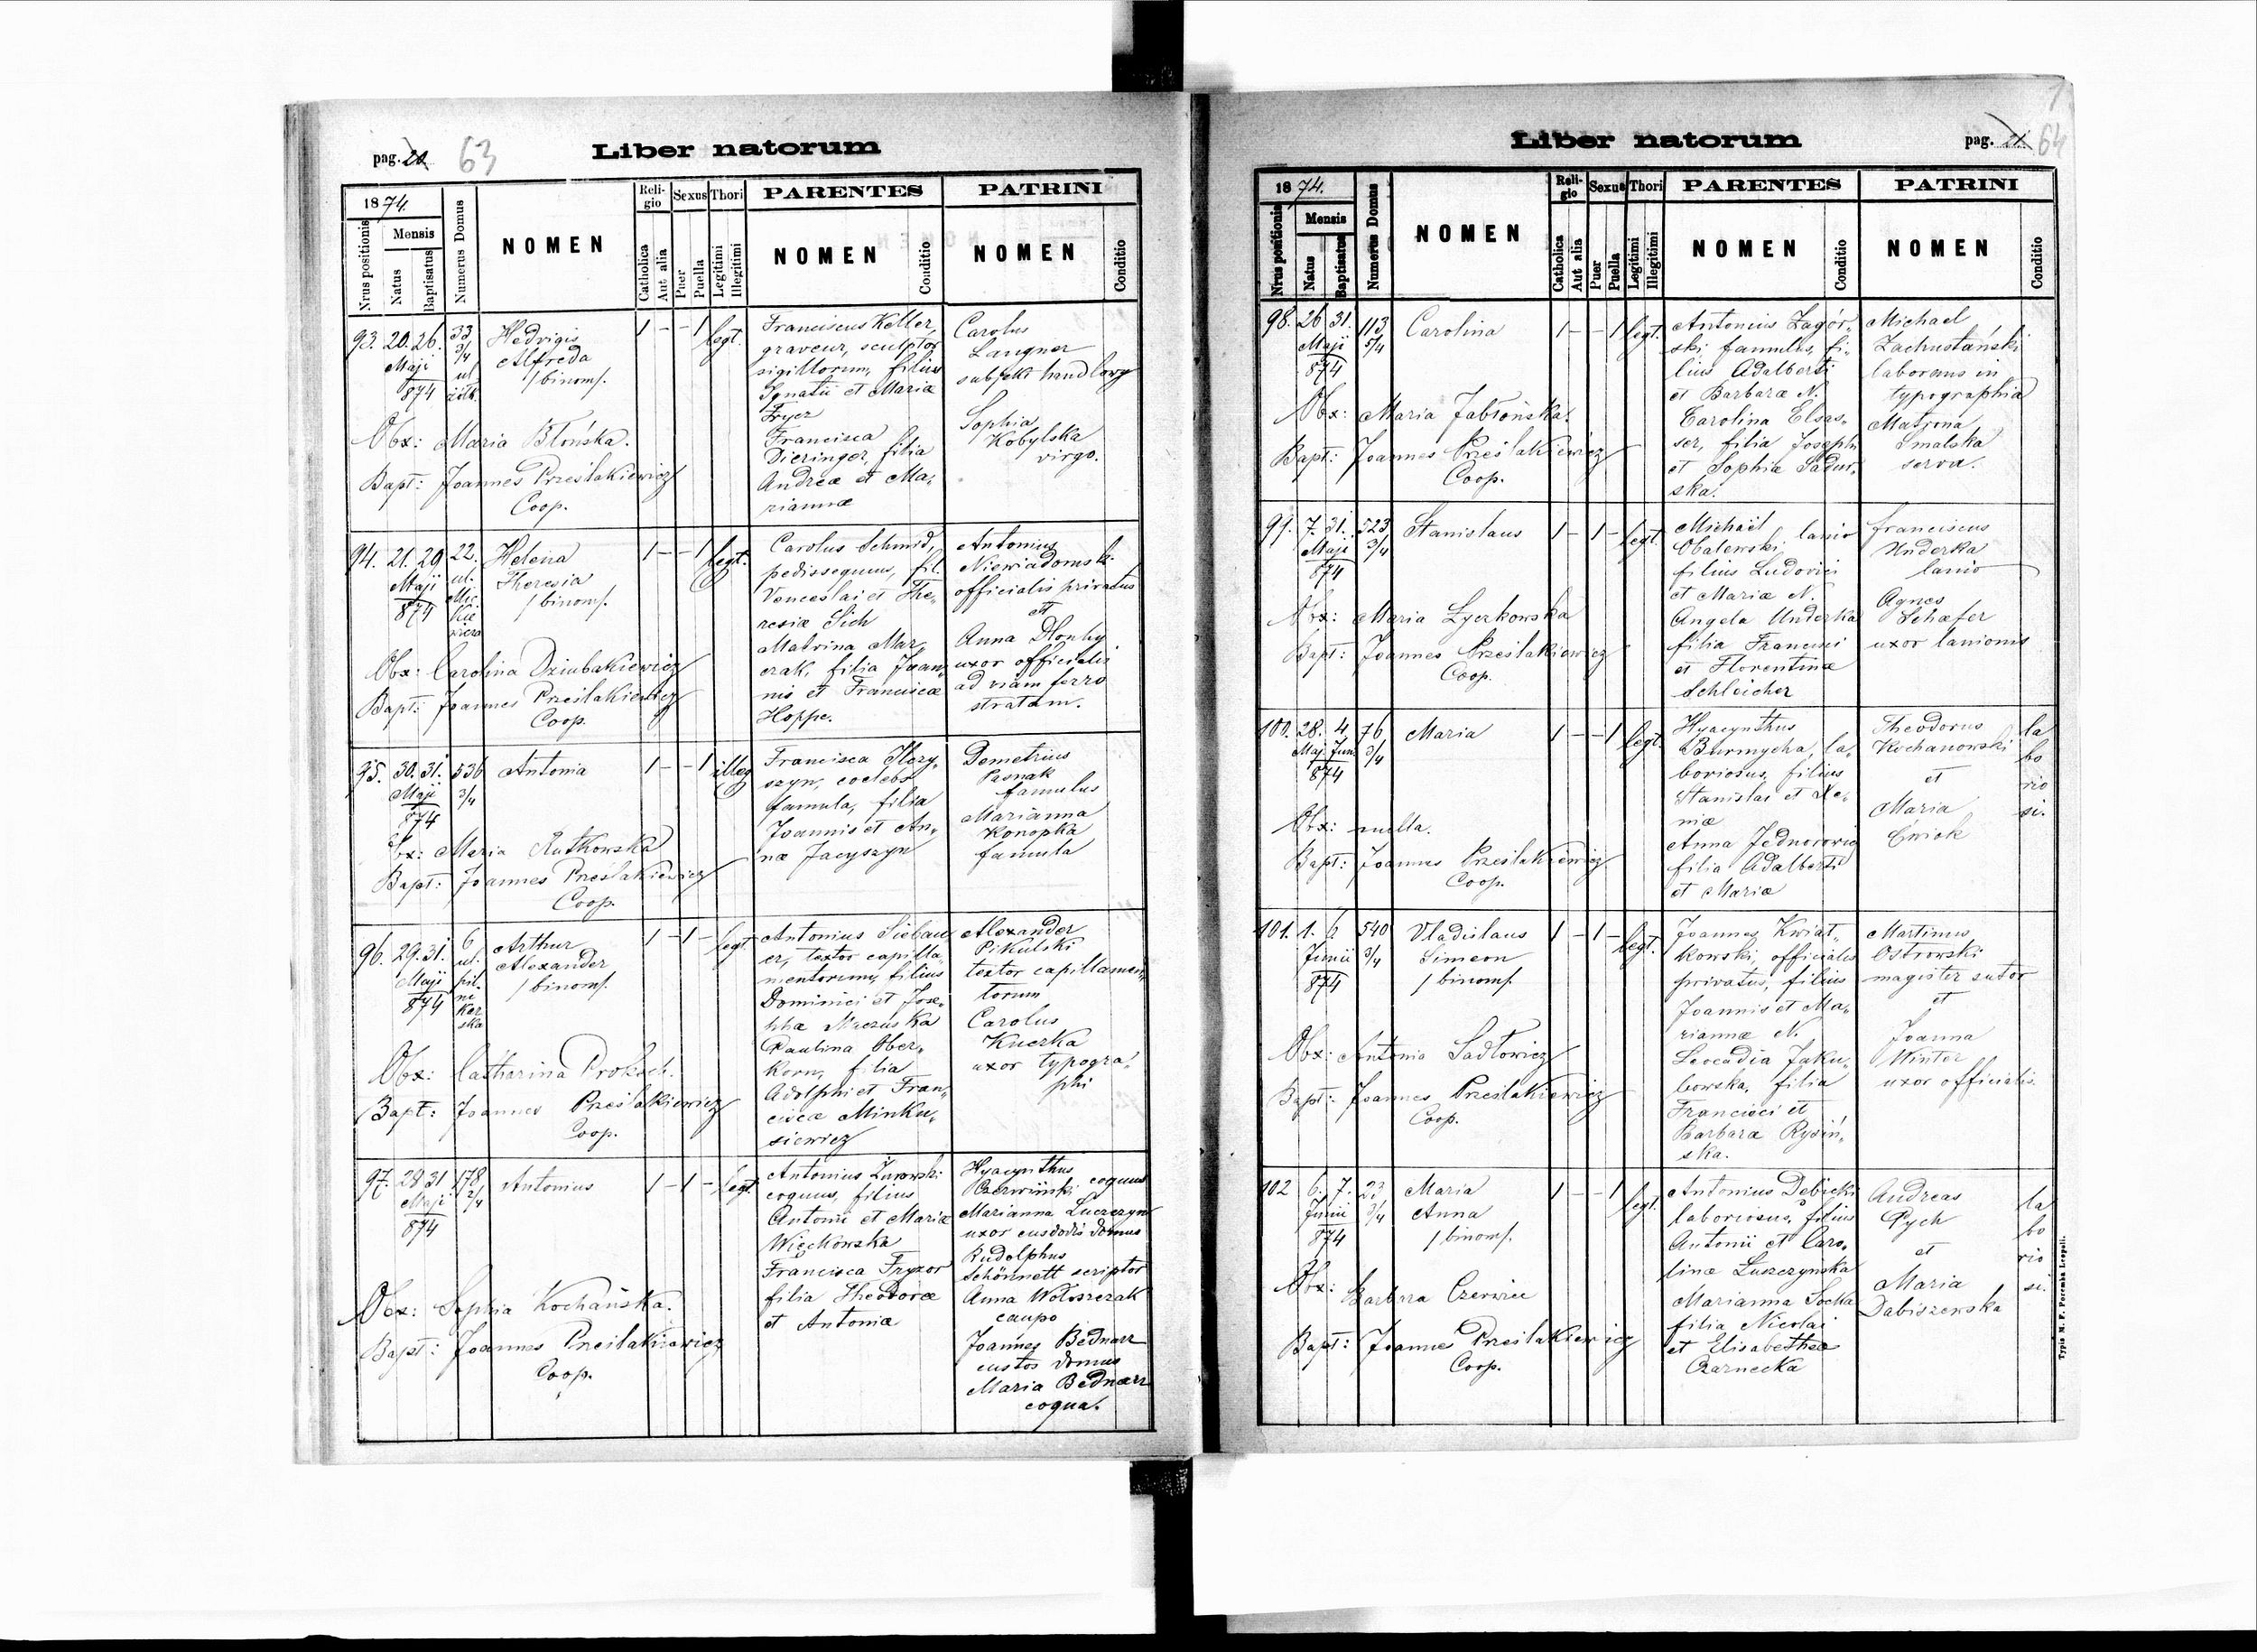 pag. 20 63
Liber natorum
1874.
Nrus positionis
Mensis
Natus
Baptisatus
Numerus Domus
NOMEN
Religio
Catholica
Aut alia
Sexus
Puer
Puella
Thori
Legitimi
Illegitimi
PARENTES
NOMEN
Conditio
PATRINI
NOMEN
Conditio
93. 20. 26. Maji 874
33 3/4 ul
Hedvigis
Alfreda
/binom/.
1 - - 1 legt.
Franciscus Keller,
graveur, sculptor
sigillorum, filius
Ignatii et Maria
Fryer
Francisca
Dieringer, filia
Andreæ et Ma-
riannæ
Carolus
Langner
subjekt handlowy
Sophia
Kobylska
virgo.
Obx: Maria Błońska.
Bapt: Joannes Prześlakiewicz
Coop.
94. 21. 29 Maji 874
22. ul. Mickiewicza
Helena
Theresia
/binom/.
1 - - 1 legt.
Carolus Schmid,
pedissequus, fil.
Venceslai et The-
resiæ Sich
Matrina Mar-
czak, filia Joan-
nis et Franciscæ
Hoppe.
Antonius
Niewiadomski
officialis privatus
et
Anna Dlouhy
uxor officialis
ad viam ferro
stratam.
Obx: Carolina Dziubakiewicz
Bapt: Joannes Prześlakiewicz
Coop.
95. 30. 31. Maji 874
536 3/4
Antonia
1 - - 1 illeg
Francisca
szyn, coelebs
famula, filia
Joannis et An-
næ Jacyszyn
Demetrius
Pasnak
famulus
Marianna
Konopka
famula
Obx: Maria Rutkowska
Bapt: Joannes Prześlakiewicz
Coop.
96. 29. 31. Maji 874
6 ul.
Arthur
Alexander
/binom/.
1 - 1 - legt.
Antonius Siebau-
er, textor capilla-
mentorum, filius
Dominici et Jose-
phæ Mączuska
Paulina Ober-
korn, filia
Adolphi et Fran-
ciscæ Minku-
siewicz
Alexander
Pikulski
textor capillamen-
torum
Carolus
Kuczka
uxor typogra-
phi
Obx: Catharina Proksch.
Bapt: Joannes Prześlakiewicz
Coop.
97. 28 31 Maji 874
178 2/4
Antonius
1 - 1 - legt.
Antonius Żurowski
coquus, filius
Antonii et Mariæ
Więckowska
Francisca Fryzor
filia Theodoræ
et Antonia
Hyacynthus
Czerwiński coquus
Marianna Luczczyn
uxor custodis domus
Rudolphus
Schönnett scriptor
Anna Wołoszczak
caupo
Joannes Bednarz
custos domus
Maria Bednarz
coqua.
Obx: Sophia Kochańska.
Bapt: Joannes Prześlakiewicz
Coop.
Liber natorum
pag. 21. 64
1874.
Nrus positionis
Mensis
Natus
Baptisatus
Numerus Domus
NOMEN
Religio
Catholica
Aut alia
Sexus
Puer
Puella
Thori
Legitimi
Illegitimi
PARENTES
NOMEN
Conditio
PATRINI
NOMEN
Conditio
98. 26 31. Maji 874
113 5/4
Carolina
1 - - 1 legt.
Antonius Zagór-
ski famulus, fi-
lius Adalberti
et Barbaræ N.
Carolina Elsas-
ser, filia Josephi
et Sophia Sadur-
ska.
Michael
Zachustański
laborans in
typographia
Matrona
Smalska
serva.
Obx: Maria Jabłońska.
Bapt: Joannes Prześlakiewicz
Coop.
99. 7. 31. Maji 874
523 3/4
Stanislaus
1 - 1 - legt.
Michaël
Obalewski lanio
filius Ludovici
et Mariæ N.
Angela Underka
filia Francisci
et Florentinæ
Schleicher
Franciscus
Underka
lanio
Agnes
Schæfer
uxor lanionis
Obx: Maria Łyczkowska
Bapt: Joannes Prześlakiewicz
Coop.
100. 28. 4. Maj. Jun. 874
76 3/4
Maria
1 - - 1 legt.
Hyacynthus
Burmycha, la-
boriosus, filius
Stanislai et Xe-
niæ
Anna Jednorowicz
filia Adalberti
et Mariæ
Theodorus
Kochanowski
et
Maria
Ćwiok
la
bo
rio
si.
Obx: nulla.
Bapt: Joannes Prześlakiewicz
Coop.
101. 1. 6 Junii 874
540 3/4
Vladislaus
Simeon
/binom/.
1 - 1 - legt.
Joannes Kwiat-
kowski, officialis
privatus, filius
Joannis et Ma-
riannæ N.
Leocadia Jaku-
bowska, filia
Francisci et
Barbara Rysiń-
ska.
Martinus
Ostrowski
magister sutor
et
Joanna
Winter
uxor officialis.
Obx: Antonia Sadłowicz
Bapt: Joannes Prześlakiewicz
Coop.
102 6. 7. Junii 874
Maria
Anna
/binom/.
1 - - 1 legt.
Antonius Dębicki
laboriosus, filius
Antonii et Caro-
linæ Luszczynska
Marianna Socka
filia Nicolai
et Elisabethæ
Czarnecka
Andreas
Pych
et
Maria
Dabiszewska
la
bo
rio
si.
Obx: Barbara Czerwiec
Bapt: Joannes Prześlakiewicz
Coop.
Typis M. F. Poremba Leopoli.